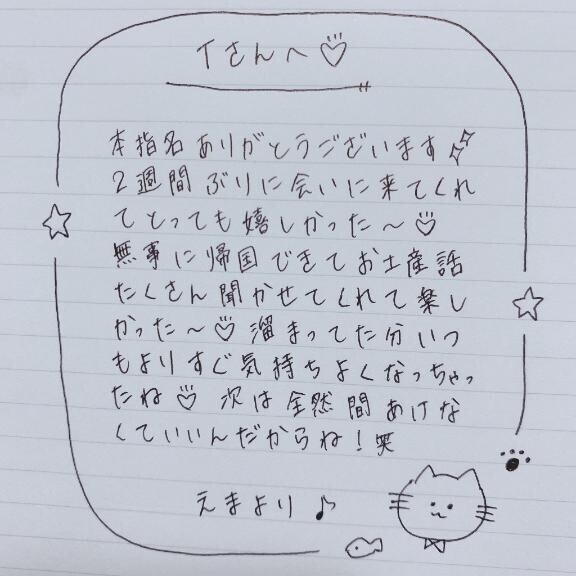 Tさんへ♡
本指名ありがとうございます
2週間ぶりに会いに来てくれ
てとっても嬉しかった〜♡
無事に帰国できてお土産話
たくさん聞かせてくれて楽し
かった〜♡溜まってた分いつ
もよりすぐ気持ちよくなっちゃっ
たね♡次は全然間あけな
くていいんだからね!笑
えまより♪